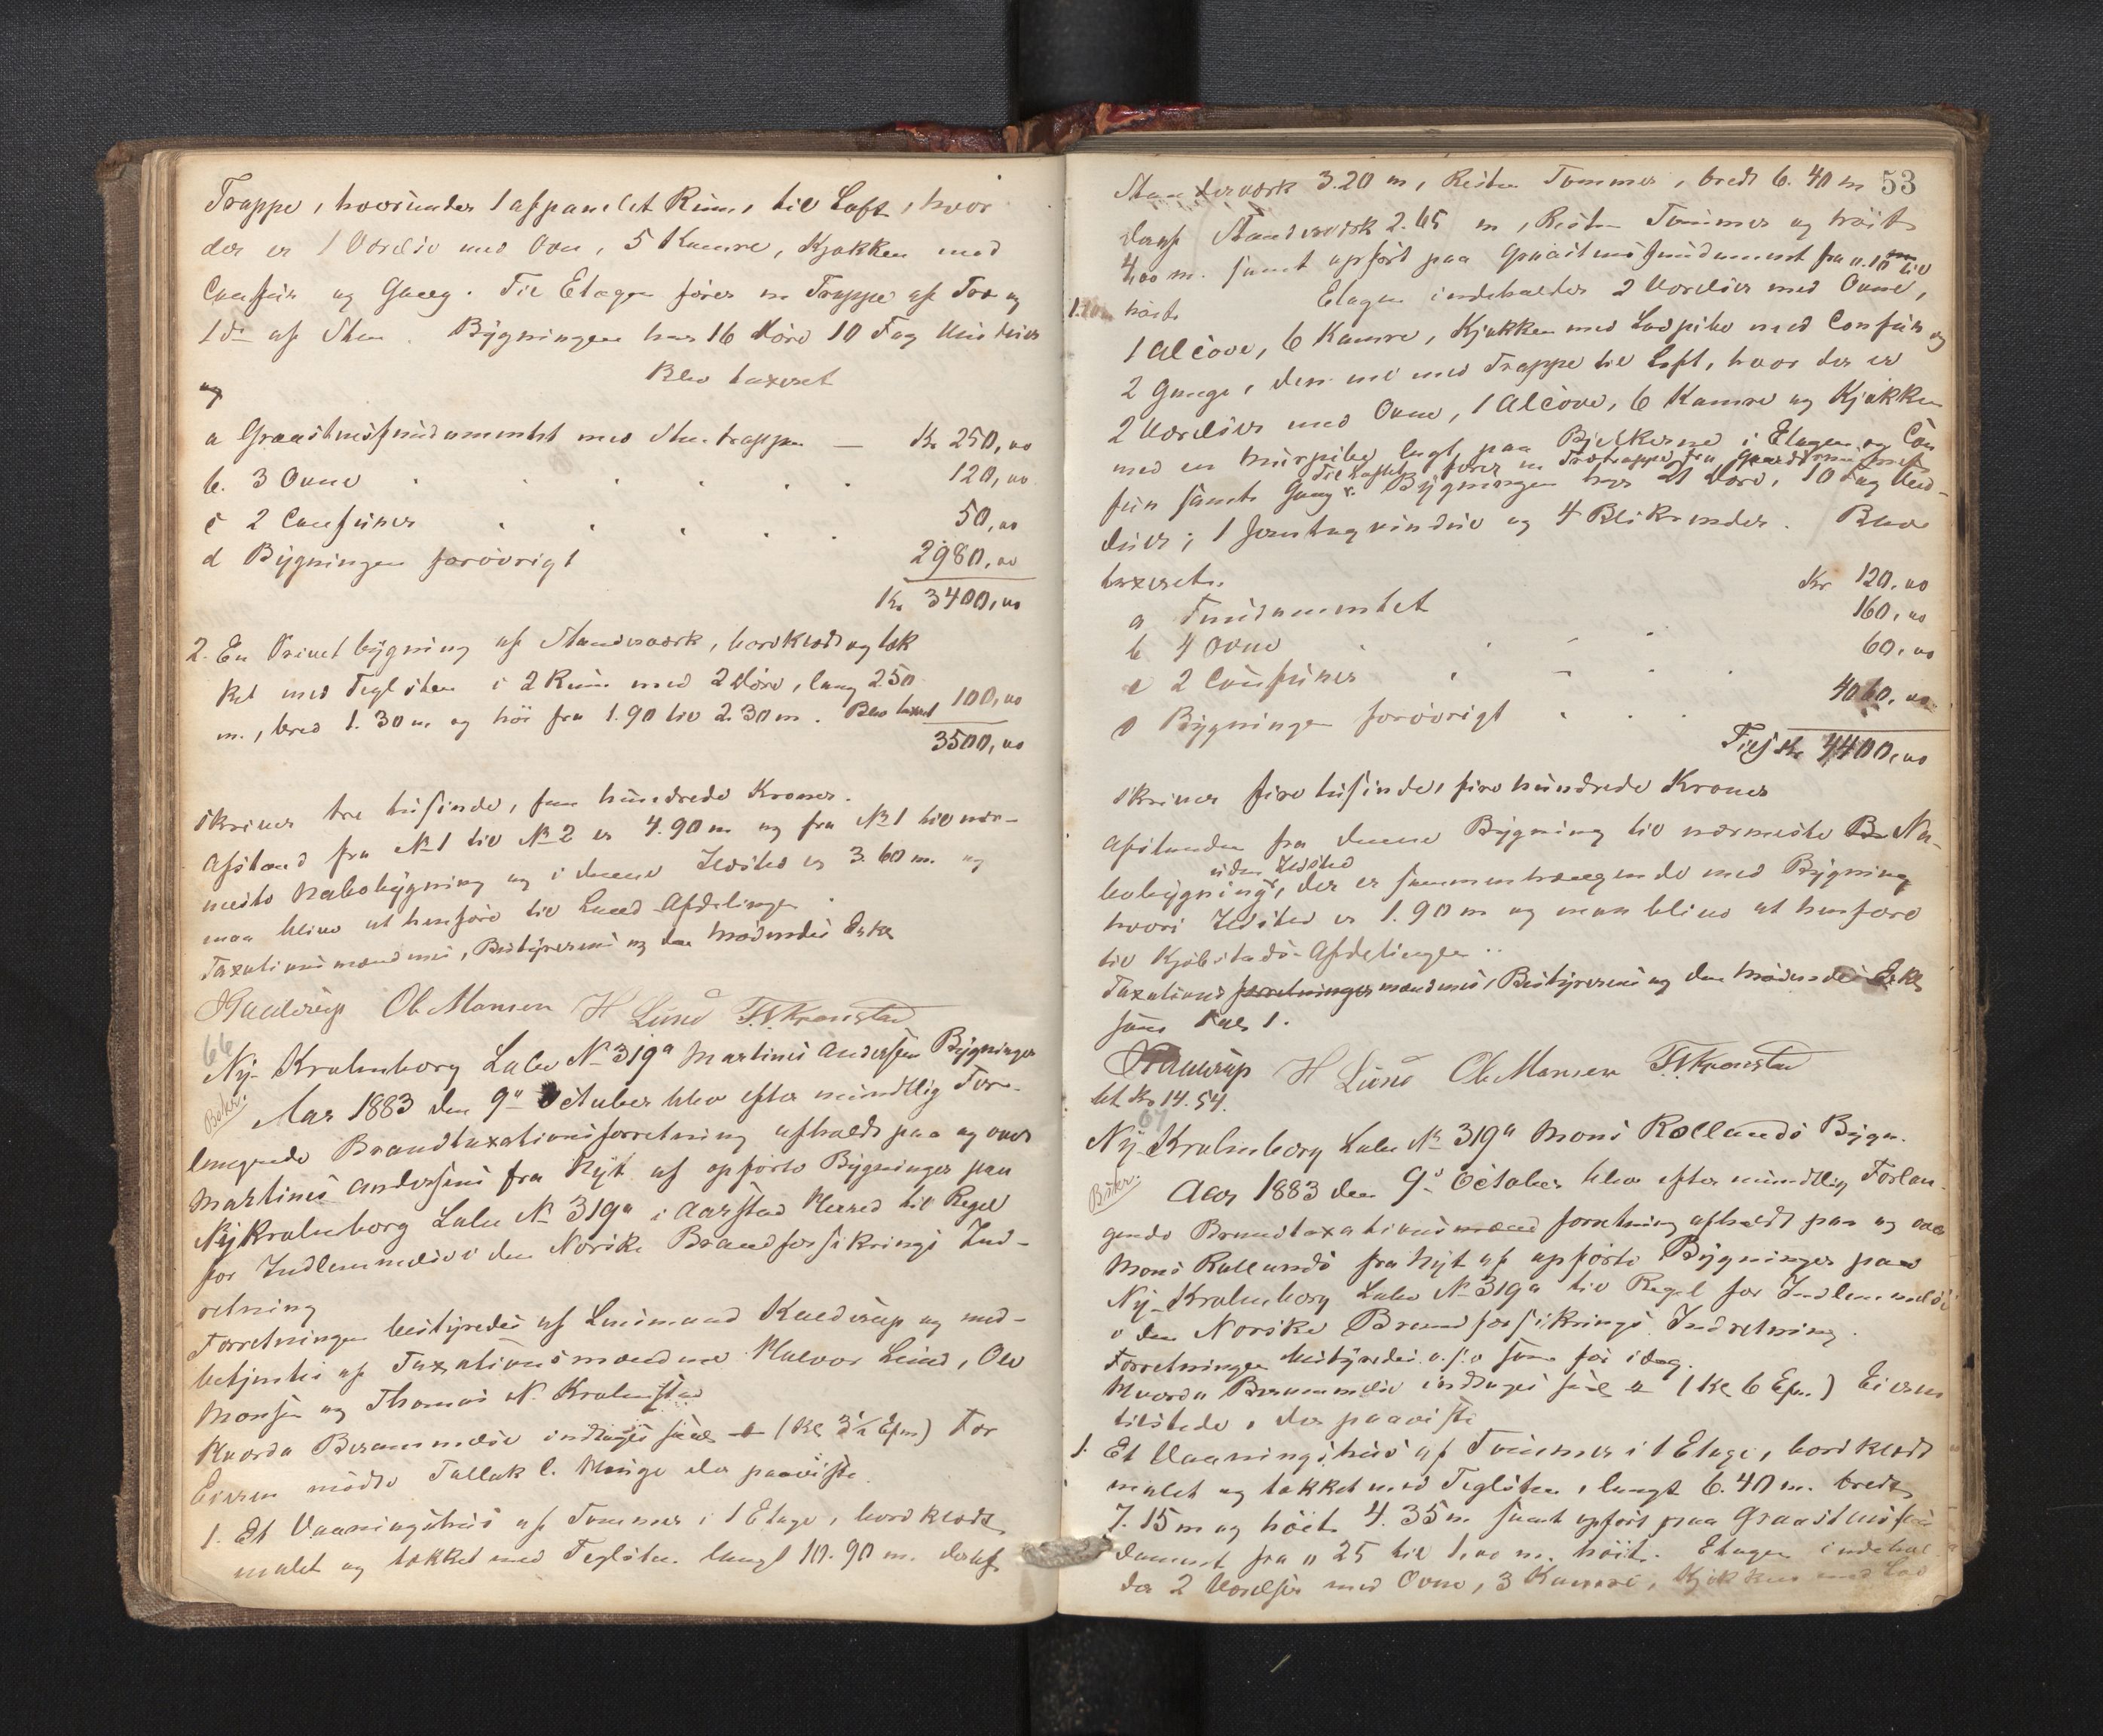 Trappe, hvorunder 1 afpanelet Rum, til Loft, hvor
der er 1 Værelse med Ovn, 5 Kamre, Kjøkken med
Comfur og Gang. Til Etagen fører en Trappe af Træ og
1 do af Sten. Bygningen har 16 Døre 10 Fag Vinduer
og Blev taxeret
a Graastensfundamentet med Stentrappen — Kr 250,00
b. 3 Ovne 120,00
c 2 Comfurer 50,00
d Bygningen forøvrigt 2980,00
Kr 3400,00
2. En Privetbygning af Standerværk, bordklædt og tæk
ket med Teglsten i 2 Rum med 2 Døre, lang 2.50
m., bred 1.30 m og høi fra 1.90 til 2.30 m. Blev taxeret 100,00
3500,00
skriver tre tusinde, fem hundrede Kroner.
Afstand fra No 1 til No 2 er 4.90 m og fra No 1 til nær-
meste Nabobygning og i denne Ildsted er 3.60 m. og
man blive at henføre til Land-Afdelingen.
Taxationsmændenes, Bestyrerens og den Mødendes
Kaldrup Ole Monsen H Lund T. N. Kronstad
66
Ny-Krohnborg Labe No 319a Martines Andersens Bygninger
Bekr.
Aar 1883 den 9de October blev efter mundtlig For-
langende Brandtaxationsforretning afholdt paa og over
Martines Andersens fra Nyt af opførte Bygninger paa
Nykrohnborg Labe No 319a i Aarstad Herred til Regel
for Indlemmelse i den Norske Brandforsikrings Ind-
retning
Forretningen bestyredes af Lensmand Kaldrup og med-
betjentes af Taxationsmændene Halvor Lund, Ole
Monsen og Thomas N. Krohnstad
Hvorda Berammelse indtages (Kl 3½ Efm) For
Eieren mødte Tallak C. Hauge der paaviste.
1. Et Vaaningshus af Tømmer i 1 Etage, bordklædt,
malet og tækket med Teglsten. langt 10.90 m. deraf
53
Standerværk 3.20 m, Resten Tømmer, bredt 6.40 m
deraf Standerværk 2.65 m, Resten Tømmer og høit
4,00 m. samt opført paa Graastensfundament fra 0.10 m til
1.70 m høit. Etagen indeholder 2 Værelser med Ovne,
1 Alcove, 6 Kamre, Kjøkken med Ladpibe med Comfur og
2 Gange, den ene med Trappe til Loft, hvor der er
2 Værelser med Ovne, 1 Alcove, 6 Kamre og Kjøkken
med en Murpibe lagt paa Bjelkerne i Etagen og Com
Til Loftet fører en Trætrappe fra
fur samt Gang. Bygningen har 21 Døre, 10 Fag Vin-
duer, 1 Jerntagvindue og 4 Blikrender. Blev
taxeret.
a Fundamentet Kr 120,00
b 4 Ovne 160,00
c 2 Comfurer 60,00
d Bygningen forøvrigt 4060,00
Tils Kr 4400,00
skriver fire tusinde, fire hundrede Kroner
Afstanden fra denne Bygning til nærmeste B Na-
uden Ildsted
bobygning, der er sammenhængende med Bygning
hvori Ildsted er 1.90 m og man blive at henføre
til Kjøbstads-Afdelingen.
Taxations forretninger mændenes, Bestyrerens og den Mødendes
som 1.
Kaldrup H Lund Ole Monsen T. N. Kronstad
bt Kr 14.54.
67
Ny-Krohnborg Labe No 319a Mons Rollands Bygn.
Bekr.
Aar 1883 den 9de October blev efter mundtlig Forlan-
gende Brandtaxationsmænd forretning afholdt paa og over
Mons Rollands fra Nyt af opførte Bygninger paa
Ny-Krohnborg Labe No 319a til Regel for Indlemmelse
i den Norske Brandforsikrings Indretning.
Forretningen bestyredes o.s.v som før idag.
Hvorda Berammelse indtages (Kl 6 Efm.) Eieren
tilstede, der paaviste
1. Et Vaaningshus af Tømmer i 1 Etage, bordklædt
malet og tækket med Teglsten, langt 6.40 m. bredt
7.15 m og høit 4.35 m samt opført paa Graastensfun
dament fra 0 25 til 1.00 m. høit. Etagen indehol
der 2 Værelser med Ovne, 3 Kamre, Kjøkken med Lad